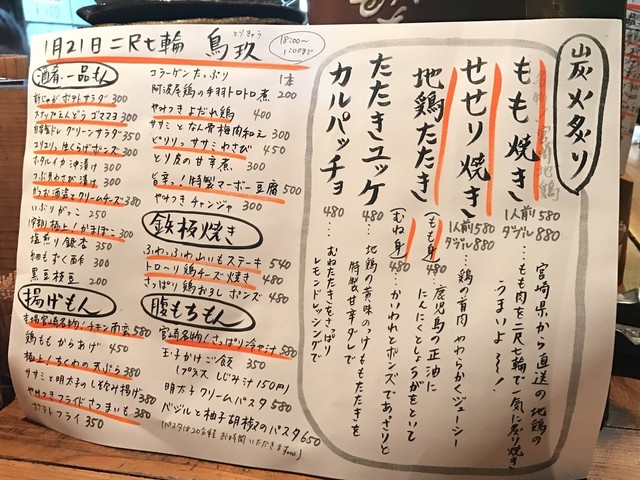 1月21日 二尺七輪 鳥玖
とりきゅう
18:00〜
1:00まで
酒肴・一品もん
新じゃがポテトサラダ 300
スナップえんどうゴマヨゴ 300
自家製ドレグリーンサラダ 350
コリコリッ生くらげポンズ 300
ホタルイカ沖漬け 300
つぶ貝わさび漬け 300
かつお酒盗とクリームチーズ 380
いぶりがっこ 250
極上!かまぼこ 300
塩煎り銀杏 350
細もずく酢 300
黒豆枝豆 200
コラーゲンたっぷり
阿波尾鶏の手羽トロトロ煮 1本 200
やみつきよだれ鶏 400
ササミとなん骨梅肉和え 300
ピリリッササミわさび 450
とり皮の甘辛煮 300
旨辛!特製マーボー豆腐 500
やみつきチャンジャ 300
鉄板焼き
ふわっふわ山いもステーキ 540
トロ〜リ鶏チーズ焼き 480
さっぱり鶏おろしポンズ 480
揚げもん
本場宮崎名物!チキン南蛮 580
鶏ももからあげ 450
極上!ちくわの天ぷら 380
ササミと明太のしそ包み揚げ 380
やみつきフライドさつまいも 380
ポテトフライ 350
腹もちもん
宮崎名物!さっぱり冷や汁 580
玉子かけご飯 350
(プラス しじみ汁150円)
明太クリームパスタ 580
バジルと柚子胡椒のパスタ 650
(パスタは20分程お時間いただきます)
炭火炙り
名物!宮崎地鶏
もも焼き
1人前 580
ダブル 880
宮崎県から直送の地鶏の
もも肉を二尺七輪で一気に炙り焼き
うまいよ〜!
せせり焼き
1人前 580
ダブル 880
…鶏の首肉 やわらかくジューシー
地鶏たたき
(もも身) 480
(むね身) 480
鹿児島の正油に
にんにくとしょうがをといて
…かいわれとポンズであっさりと
たたきユッケ
480 … 地鶏の黄味のっけももたたきを
特製甘辛ダレで
カルパッチョ
480 … むねたたきをさっぱり
レモンドレッシングで